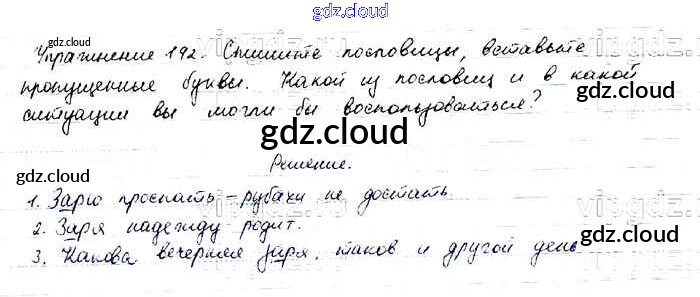 gdz.cloud
Упражнение 192. Спишите пословицы, вставьте
gdz.cloud gdz.cloud
пропущенные буквы. Какой из пословиц и в какой
ситуации вы могли бы воспользоваться?
gdz.cloud
gdz.cloud
gdz.cloud
Решение.
1. Зарю проспать – рубахи не достать.
2. Заря надежду родит.
gdz.cloud
3. Какова вечерняя заря, таков и другой день
gdz.cloud
gdz.cloud